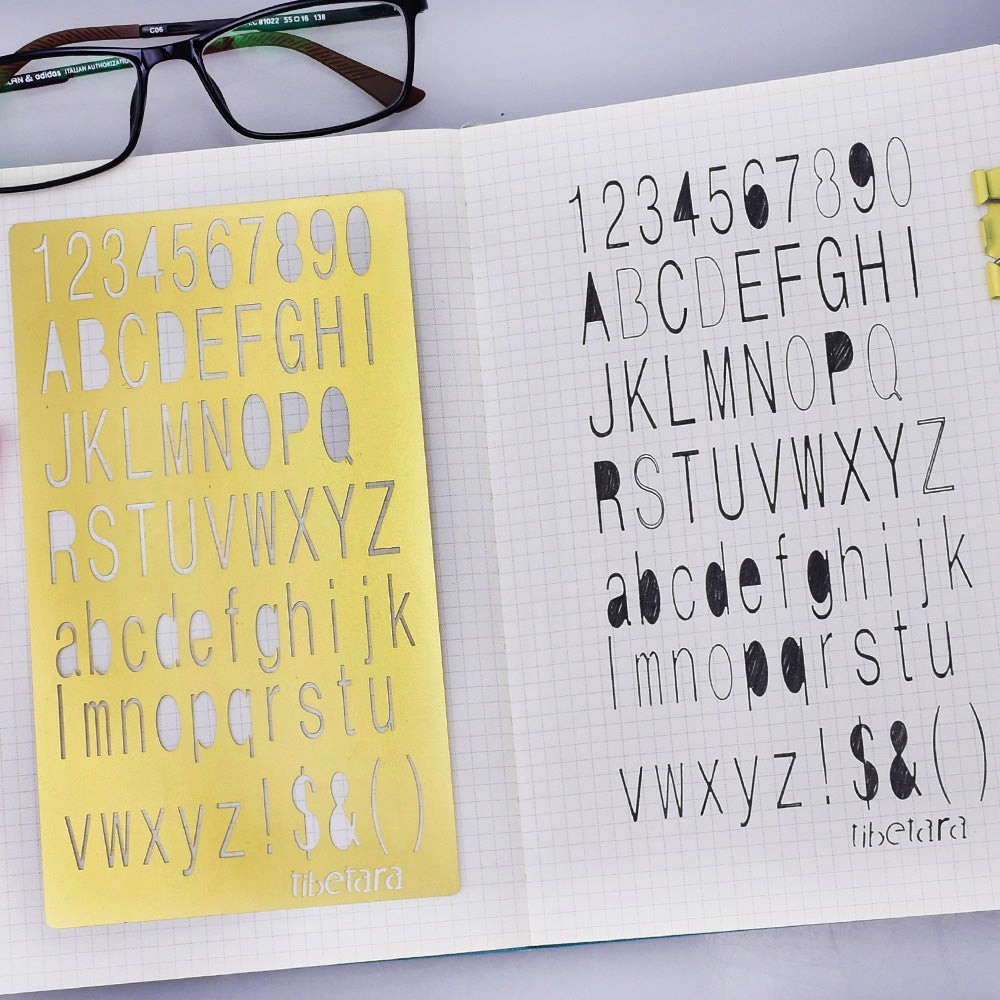 C06
81022 55□16 138
& adidas ITALIAN AUTHORIZATION
1234567890
ABCDEFGHI
JKLMNOPQ
RSTUVWXYZ
abcdefghijk
lmnopqrstu
vwxyz!$&()
tibetara
1234567890
ABCDEFGHI
JKLMNOPQ
RSTUVWXYZ
abcdefghijk
lmnopqrstu
vwxyz!$&()
tibetara